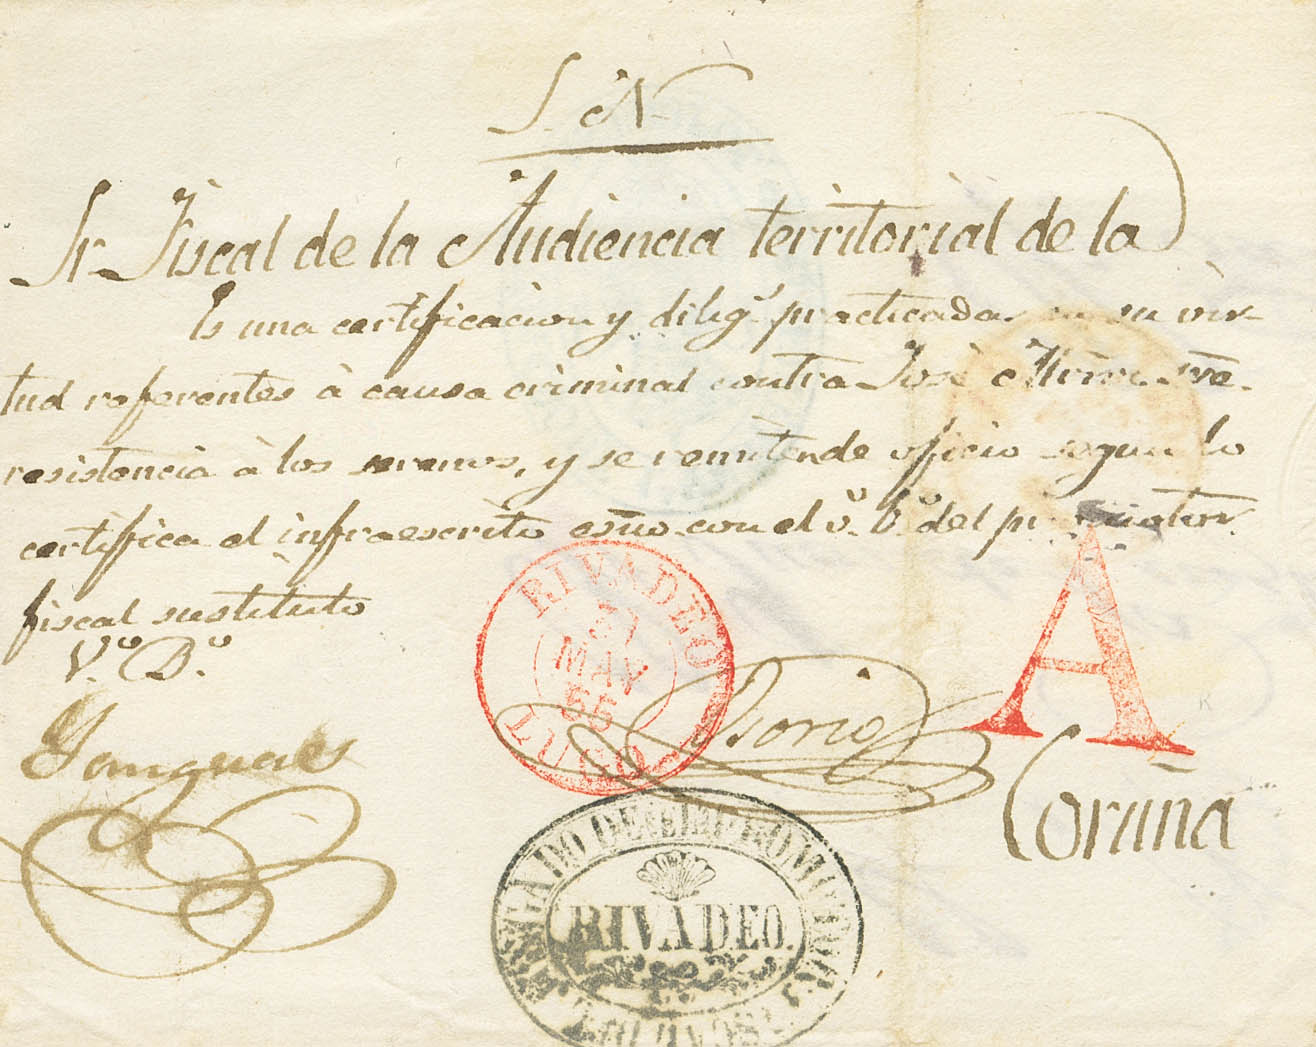 S. N.
Sr. Fiscal de la Audiencia territorial de la
Es una certificacion y dilig.s practicadas en su vir-
tud referentes à causa criminal contra José sre.
resistencia à los serenos, y se remiten de oficio segun lo
certifica el infraescrito esño. con el v.º b.º del promotor
fiscal sustituto
V.º B.º
RIVADEO
31
MAY
55
LUGO
Osorio
A
Coruña
JUZGADO DE 1ª PROMOTOR
RIVADEO.